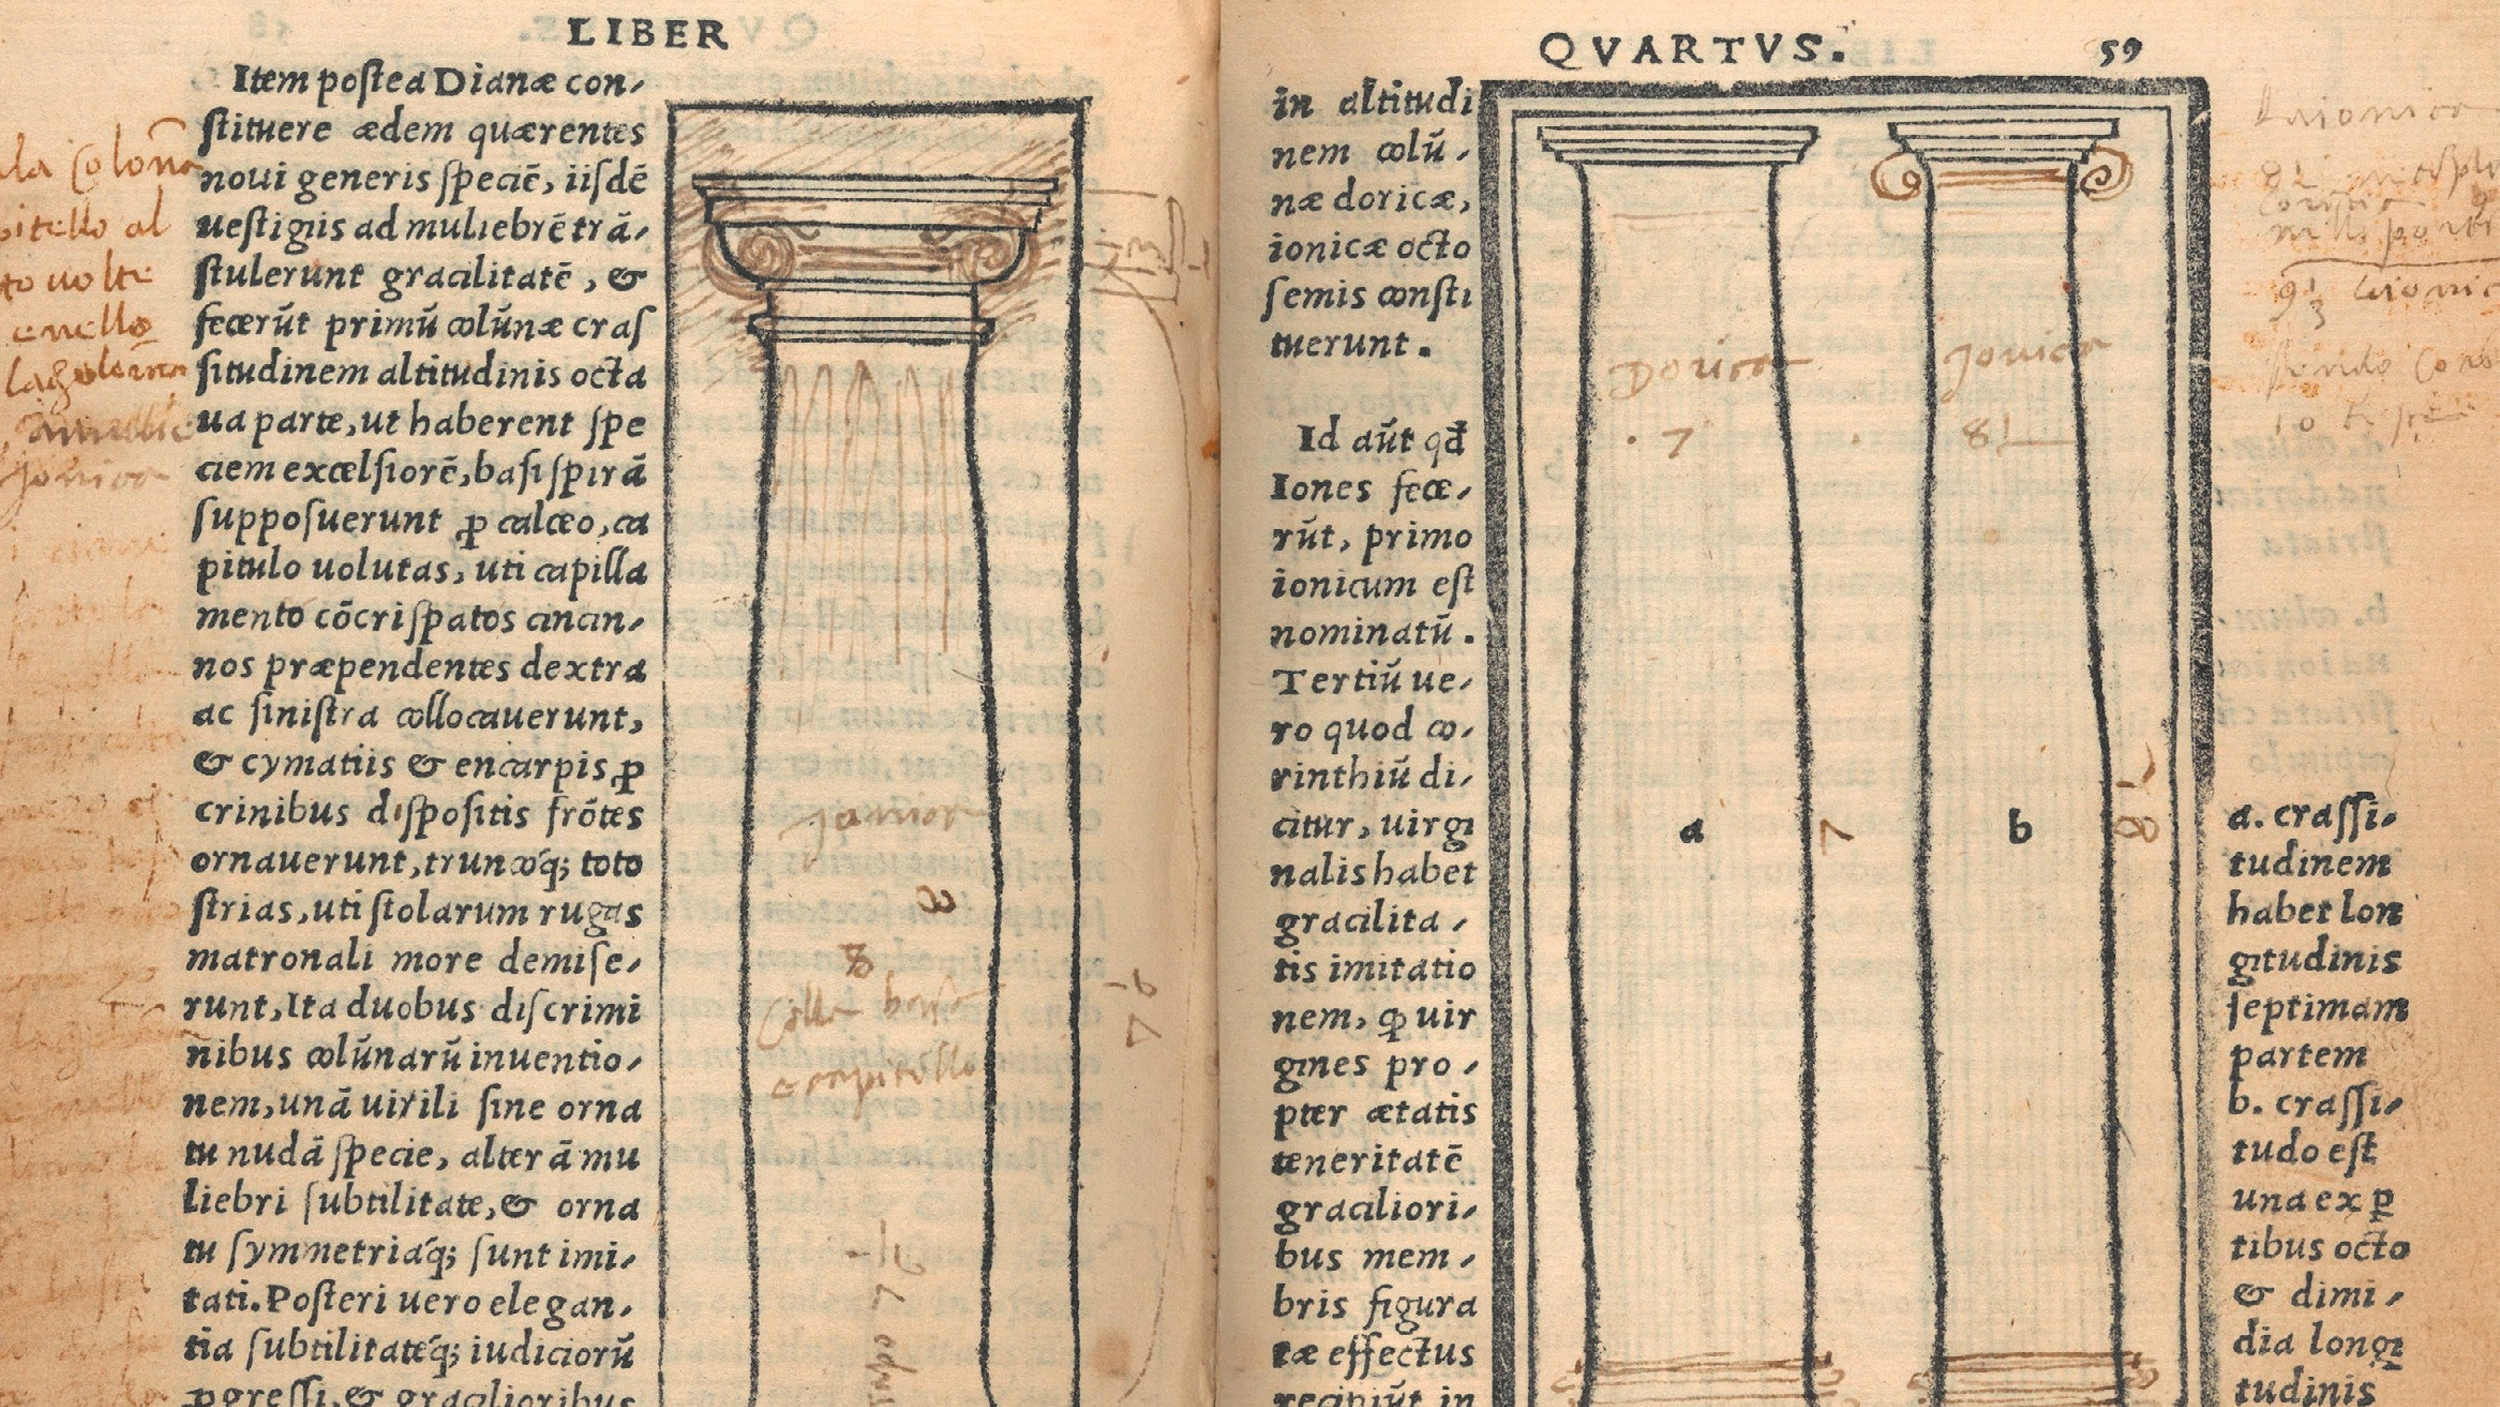 LIBER
Item poſtea Dianæ con,
ſtituere ædem quærentes
noui generis ſpeciē, iiſdē
ueſtigiis ad muliebrē trā,
ſtulerunt gracilitatē, &
fecerūt primū colūnæ craſ
ſitudinem altitudinis octa
ua parte, ut haberent ſpe
ciem excelſiorē, baſi ſpirā
ſuppoſuerunt ꝑ calceo, ca
pitulo uolutas, uti capilla
mento cōcriſpatos cincin,
nos præpendentes dextra
ac ſiniſtra collocauerunt,
& cymatiis & encarpis ꝑ
crinibus diſpoſitis frōtes
ornauerunt, truncoq́; toto
ſtrias, uti ſtolarum rugas
matronali more demiſe,
runt, Ita duobus diſcrimi
nibus colūnarū inuentio,
nem, unā uirili ſine orna
tu nudā ſpecie, alterā mu
liebri ſubtilitate, & orna
tu ſymmetriaq́; ſunt imi,
tati. Poſteri uero elegan,
tia ſubtilitateq́; iudiciorū
ꝓgreſſi, & gracilioribus
la Colon̄a
pitello al
to uolte
Jonica
8
8
colla basa
e capitello
QVARTVS. 59
in altitudi
nem colū,
næ doricæ,
ionicæ octo
ſemis conſti
tuerunt.
Id aūt qđ
Iones fece,
rūt, primo
ionicum eſt
nominatū.
Tertiū ue,
ro quod co,
rinthiū di,
citur, uirgi
nalis habet
gracilita,
tis imitatio
nem, ꝙ uir
gines pro,
pter ætatis
teneritatē
graciliori,
bus mem,
bris figura
tæ effectus
recipiūt in
Dorica
7
Jonica
a
7
b
8
a. craſſi,
tudinem
habet lon
gitudinis
ſeptimam
partem
b. craſſi,
tudo eſt
una ex ꝑ
tibus octo
& dimi,
dia longi
tudinis